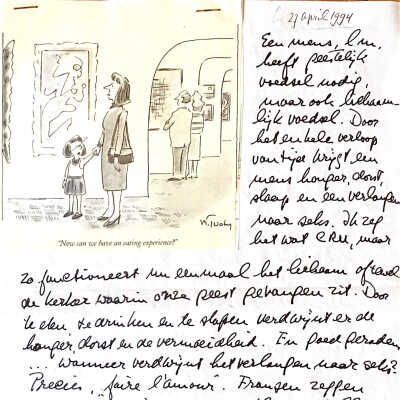 27 april 1994
Een mens, l.m.,
heeft geestelijk
voedsel nodig,
maar ook lichaam-
lijk voedsel. Door
het enkele verloop
van tijd krijgt een
mens honger, dorst,
slaap en een verlangen
naar seks. Ik zeg
het wat cru, maar
W. Tuohy
"Now can we have an eating experience?"
zo functioneert nu eenmaal het lichaam ofwel
de kerker waarin onze geest gevangen zit. Door
te eten, te drinken en te slapen verdwijnt er de
honger, dorst en de vermoeidheid. En goed geraden
... wanneer verdwijnt het verlangen naar seks?
Precies, "faire l'amour". Fransen zeggen